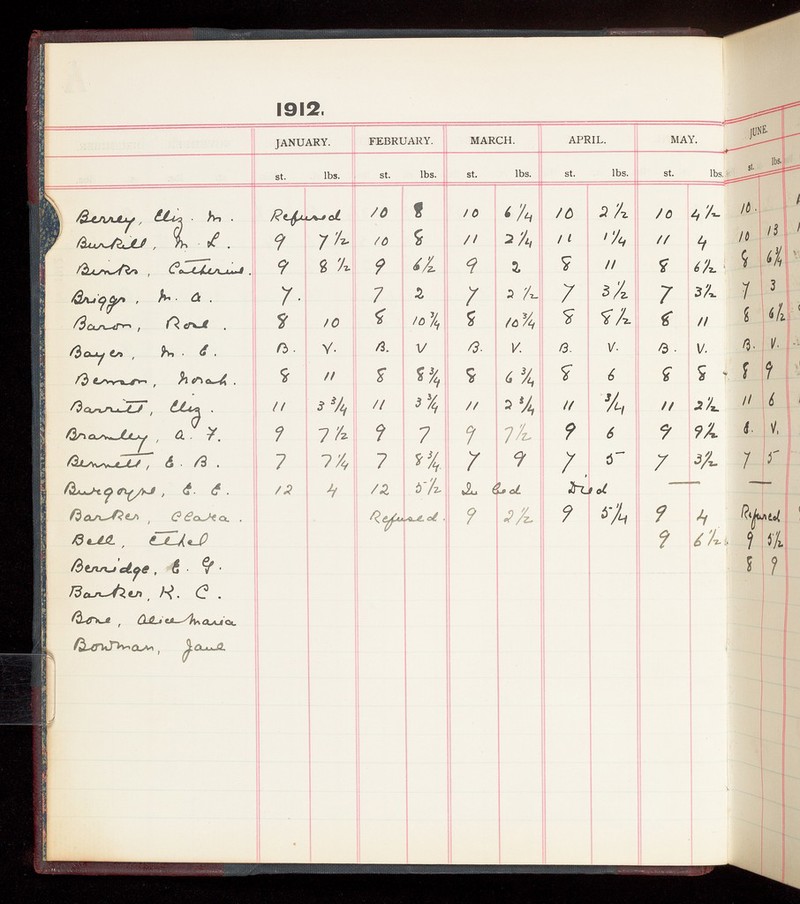 1912.
JANUARY. FEBRUARY. MARCH. APRIL. MAY. JUNE.
st. lbs. st. lbs. st. lbs. st. lbs. st. lbs. st. lbs.
Berrey, Eliz. M. Refused 10 8 10 6 1/4 10 2 1/2 10 4 1/2 10.
Burkill, M. L. 9 7 1/2 10 8 11 2 1/4 11 1 1/4 11 4 10 13
Binks, Catherine. 9 8 1/2 9 6 1/2 9 2 8 11 8 6 1/2 8 6 3/4
Briggs, M. A. 7. 7 2 7 2 1/2 7 3 1/2 7 3 1/2 7 3
Baron, Rose. 8 10 8 10 3/4 8 10 3/4 8 8 1/2 8 11 8 6 1/2
Bayes, M. E. B. V. B. V B. V. B. V. B. V. B. V.
Benson, Norah. 8 11 8 8 3/4 8 6 3/4 8 6 8 8 8 9
Barritt, Eliz. 11 3 3/4 11 3 3/4 11 2 3/4 11 3/4 11 2 1/2 11 6
Bramley, A. F. 9 7 1/2 9 7 9 7 1/2 9 6 9 9 1/2 B. V.
Bennett, E. B. 7 7 1/4 7 8 3/4 7 9 7 5 7 3 1/2 7 5
Burgoyne, E. E. 12 4 12 5 1/2 In bed Died — —
Barker, Clara. Refused. 9 2 1/2 9 5 1/4 9 4 Refused
Bell, Ethel 9 6 1/2 9 5 1/2
Berridge, E. G. 8 9
Barker, K. C.
Bone, Alice Maria
Bowman, Jane